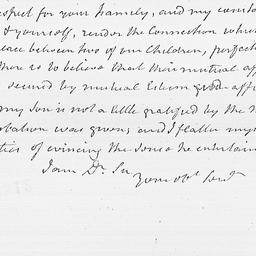 respect for your Family, and my
& yourself, render the Connection which
place between two of our Children, perfect
there is to believe that their mutual
secured by mutual Esteem
my Son is not a little gratified by the
was given; and I flatter mys
of evincing the sense he entertains
I am Dr. Sir
your obt. Servt